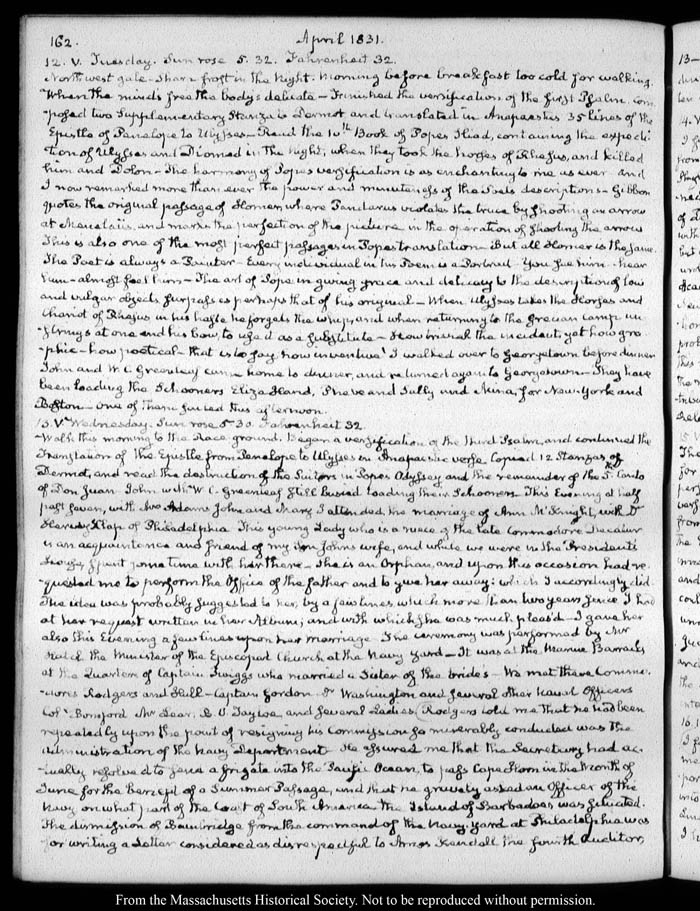 162.
April 1831.
12. V. Tuesday. Sun rose 5. 32. Fahrenheit 32.
North west gale – Sharp frost in the Night. Morning before breakfast too cold for walking.
"When the mind's free the body's delicate – Finished the versification of the first Psalm, com-
-posed two Supplementary Stanza's Dermot and translated in Anapaestics 35 lines of the
Epistle of Penelope to Ulysses – Read the 10th. Book of Popes Iliad, containing the expedi-
-tion of Ulysses and Diomed in the Night, when they took the horses of Rhesus, and killed
him and Dolon – The harmony of Popes versification is as enchanting to me as ever and
I now remarked more than ever the power and minuteness of the Poets descriptions – Gibbon
quotes the original passage of Homer, where Pandarus violates the truce by shooting an arrow
at Menelaus, and marks the perfection of the picture in the operation of shooting the arrow
This is also one of the most perfect passages in Popes translation – But all Homer is the same.
The Poet is always a Painter – Every individual in his Poem is a Portrait – You see him – hear
him – almost feel him – The art of Pope in giving grace and delicacy to the description of low
and vulgar objects surpasses perhaps that of his original – When Ulysses takes the Horses and
Chariot of Rhesus in his haste he forgets the whip, and when returning to the Grecian camp un-
-strings at one end his bow, to use it as a substitute – How trivial the incident, yet how gra-
-phic – how poetical – that is to say, how inventive! I walked over to Georgetown before dinner
John and W. C. Greenleaf came home to dinner, and returned again to Georgetown – They have
been loading the Schooners Eliza Hand, and Sally and Mina, for New York and
Boston – One of them sailed this afternoon.
13. V. Wednesday. Sun rose 5. 30. Fahrenheit 32
Walk this morning to the Race ground. Began a versification of the third Psalm, and continued the
Translation of the Epistle from Penelope to Ulysses in Anapaestic verse Copied 12 Stanzas of
Dermot, and read the destruction of the Suitors in Popes Odyssey and the remainder of the Canto
of Don Juan. John with W. C. Greenleaf still busied loading their Schooners. This Evening at half
past seven, with Mrs Adams John and Mary I attended the marriage of Ann McKnight, with Dr
Harvey Klap of Philadelphia This young Lady who is a niece of the late Commodore Decatur
is an acquaintance and friend of my Son John's wife, and while we were in the President's
House, spent some time with her there – She is an Orphan, and upon this occasion had re-
-quested me to perform the Office of the father and to give her away: which I accordingly did.
The idea was probably suggested to her, by a few lines which more than two years since I had
at her request written in her Album; and with which she was much pleas'd – I gave her
also this Evening a few lines upon her marriage. The ceremony was performed by Mr
Hatch the Minister of the Episcopal Church at the Navy Yard – It was at the Marine Barracks
at the Quarters of Captain Twiggs who married a Sister of the brides – We met there Commo-
-dores Rodgers and Hull – Captain Gordon – Dr Washington and several other Naval Officers
Col. Bomford Mr Lear, B. O. Tayloe, and several Ladies. Rodgers told me that he had been
repeatedly upon the point of resigning his Commission so miserably conducted was the
administration of the Navy Department. He assured me that the Secretary had ac-
-tually resolved to send a frigate into the Pacific Ocean, to pass Cape Horn in the Month of
June for the benefit of a Summer Passage, and that he gravely asked an Officer of the
Navy on what part of the Coast of South America the Island of Barbadoes was situated.
The dismission of Bainbridge from the command of the Navy yard at Philadelphia was
for writing a Letter considered as disrespectful to Amos Kendall the fourth Auditor,
From the Massachusetts Historical Society. Not to be reproduced without permission.